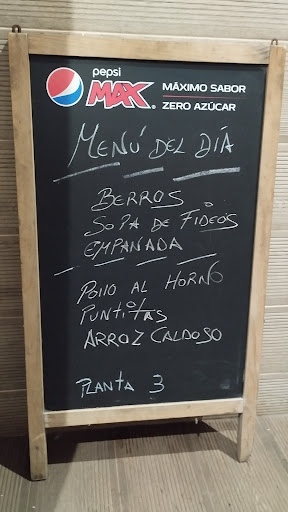 pepsi
MAX®
MÁXIMO SABOR
ZERO AZÚCAR
MENÚ DEL DÍA
BERROS
SOPA DE FIDEOS
EMPANADA
POllO AL HORNO
PUNTITAS
ARROZ CALDOSO
PLANTA 3